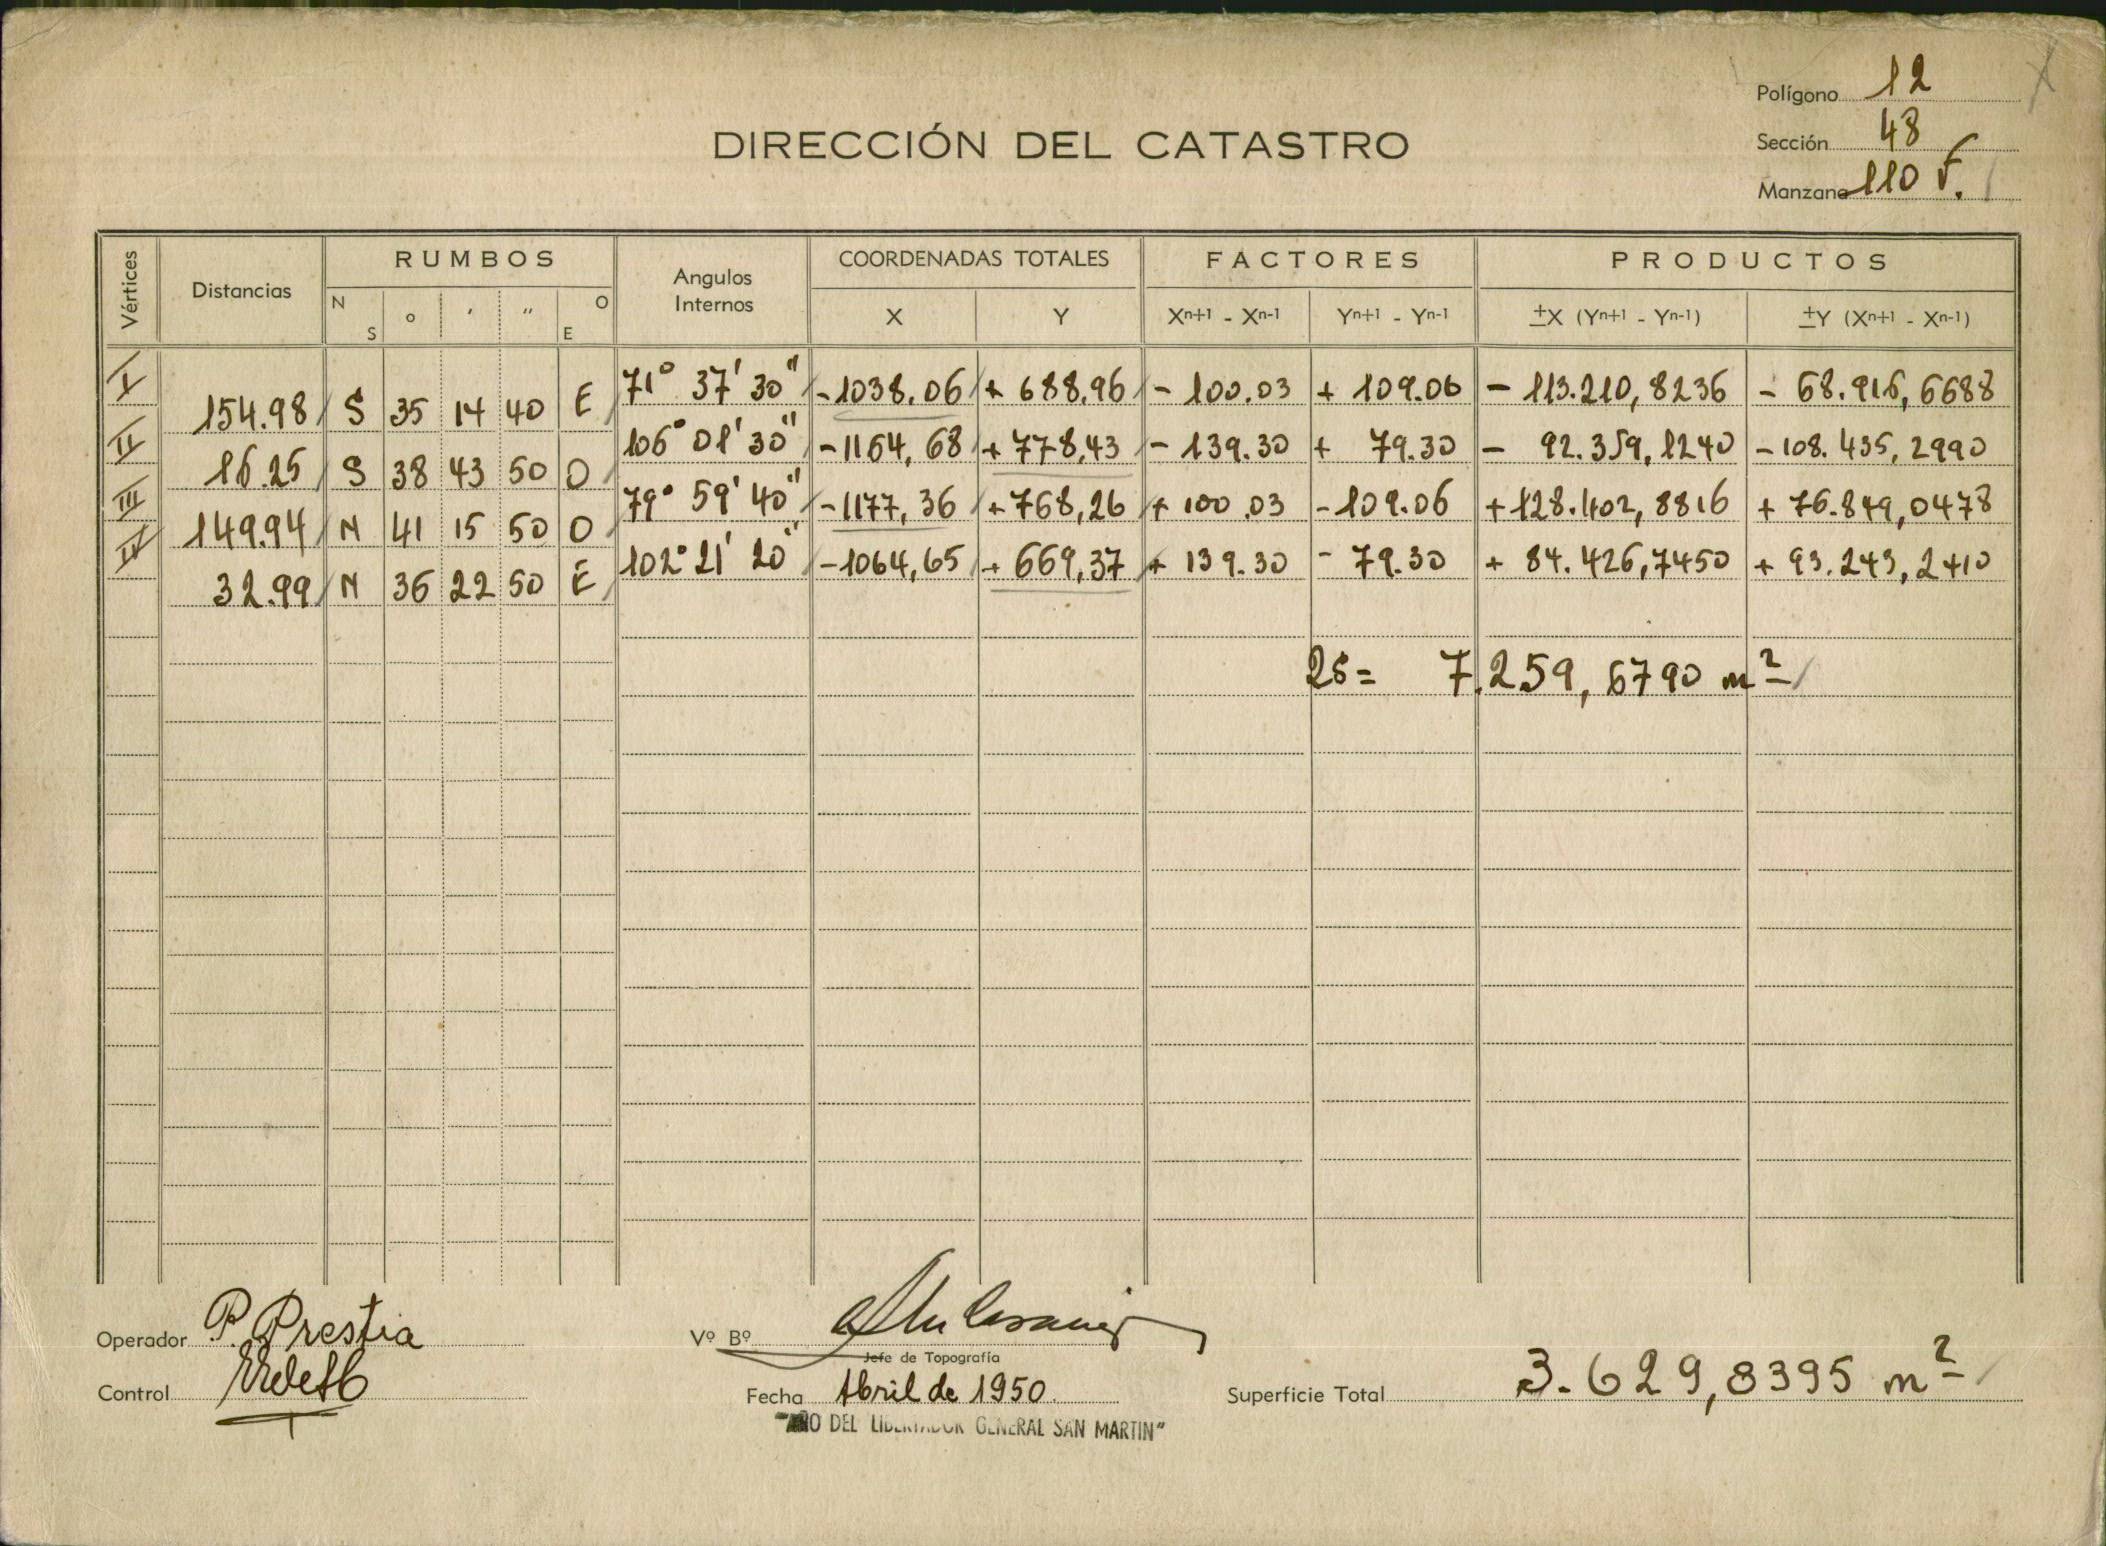 Polígono 12
DIRECCIÓN DEL CATASTRO
Sección 48
Manzana 110 F.
Vértices Distancias RUMBOS Angulos Internos COORDENADAS TOTALES FACTORES PRODUCTOS
N S ° ' " O E X Y Xn+1 - Xn-1 Yn+1 - Yn-1 ±X (Yn+1 - Yn-1) ±Y (Xn+1 - Xn-1)
I 71° 37' 30" -1038,06 + 688,96 - 100.03 + 109.06 - 113.210,8236 - 68.916,6688
154.98 S 35 14 40 E
II 106° 01' 30" -1164,68 + 778,43 - 139.30 + 79.30 - 92.359,1240 - 108.435,2990
16.25 S 38 43 50 O
III 79° 59' 40" -1177,36 + 768,26 + 100.03 - 109.06 + 128.402,8816 + 76.849,0478
149.94 N 41 15 50 O
IV 102° 21' 20" -1064,65 + 669,37 + 139.30 - 79.30 + 84.426,7450 + 93.243,2410
32.99 N 36 22 50 E
2S = 7.259,6790 m²
Operador P. Prestia
Vº Bº
Jefe de Topografía
Control
Fecha Abril de 1950.
Superficie Total 3.629,8395 m²
"AÑO DEL LIBERTADOR GENERAL SAN MARTIN"